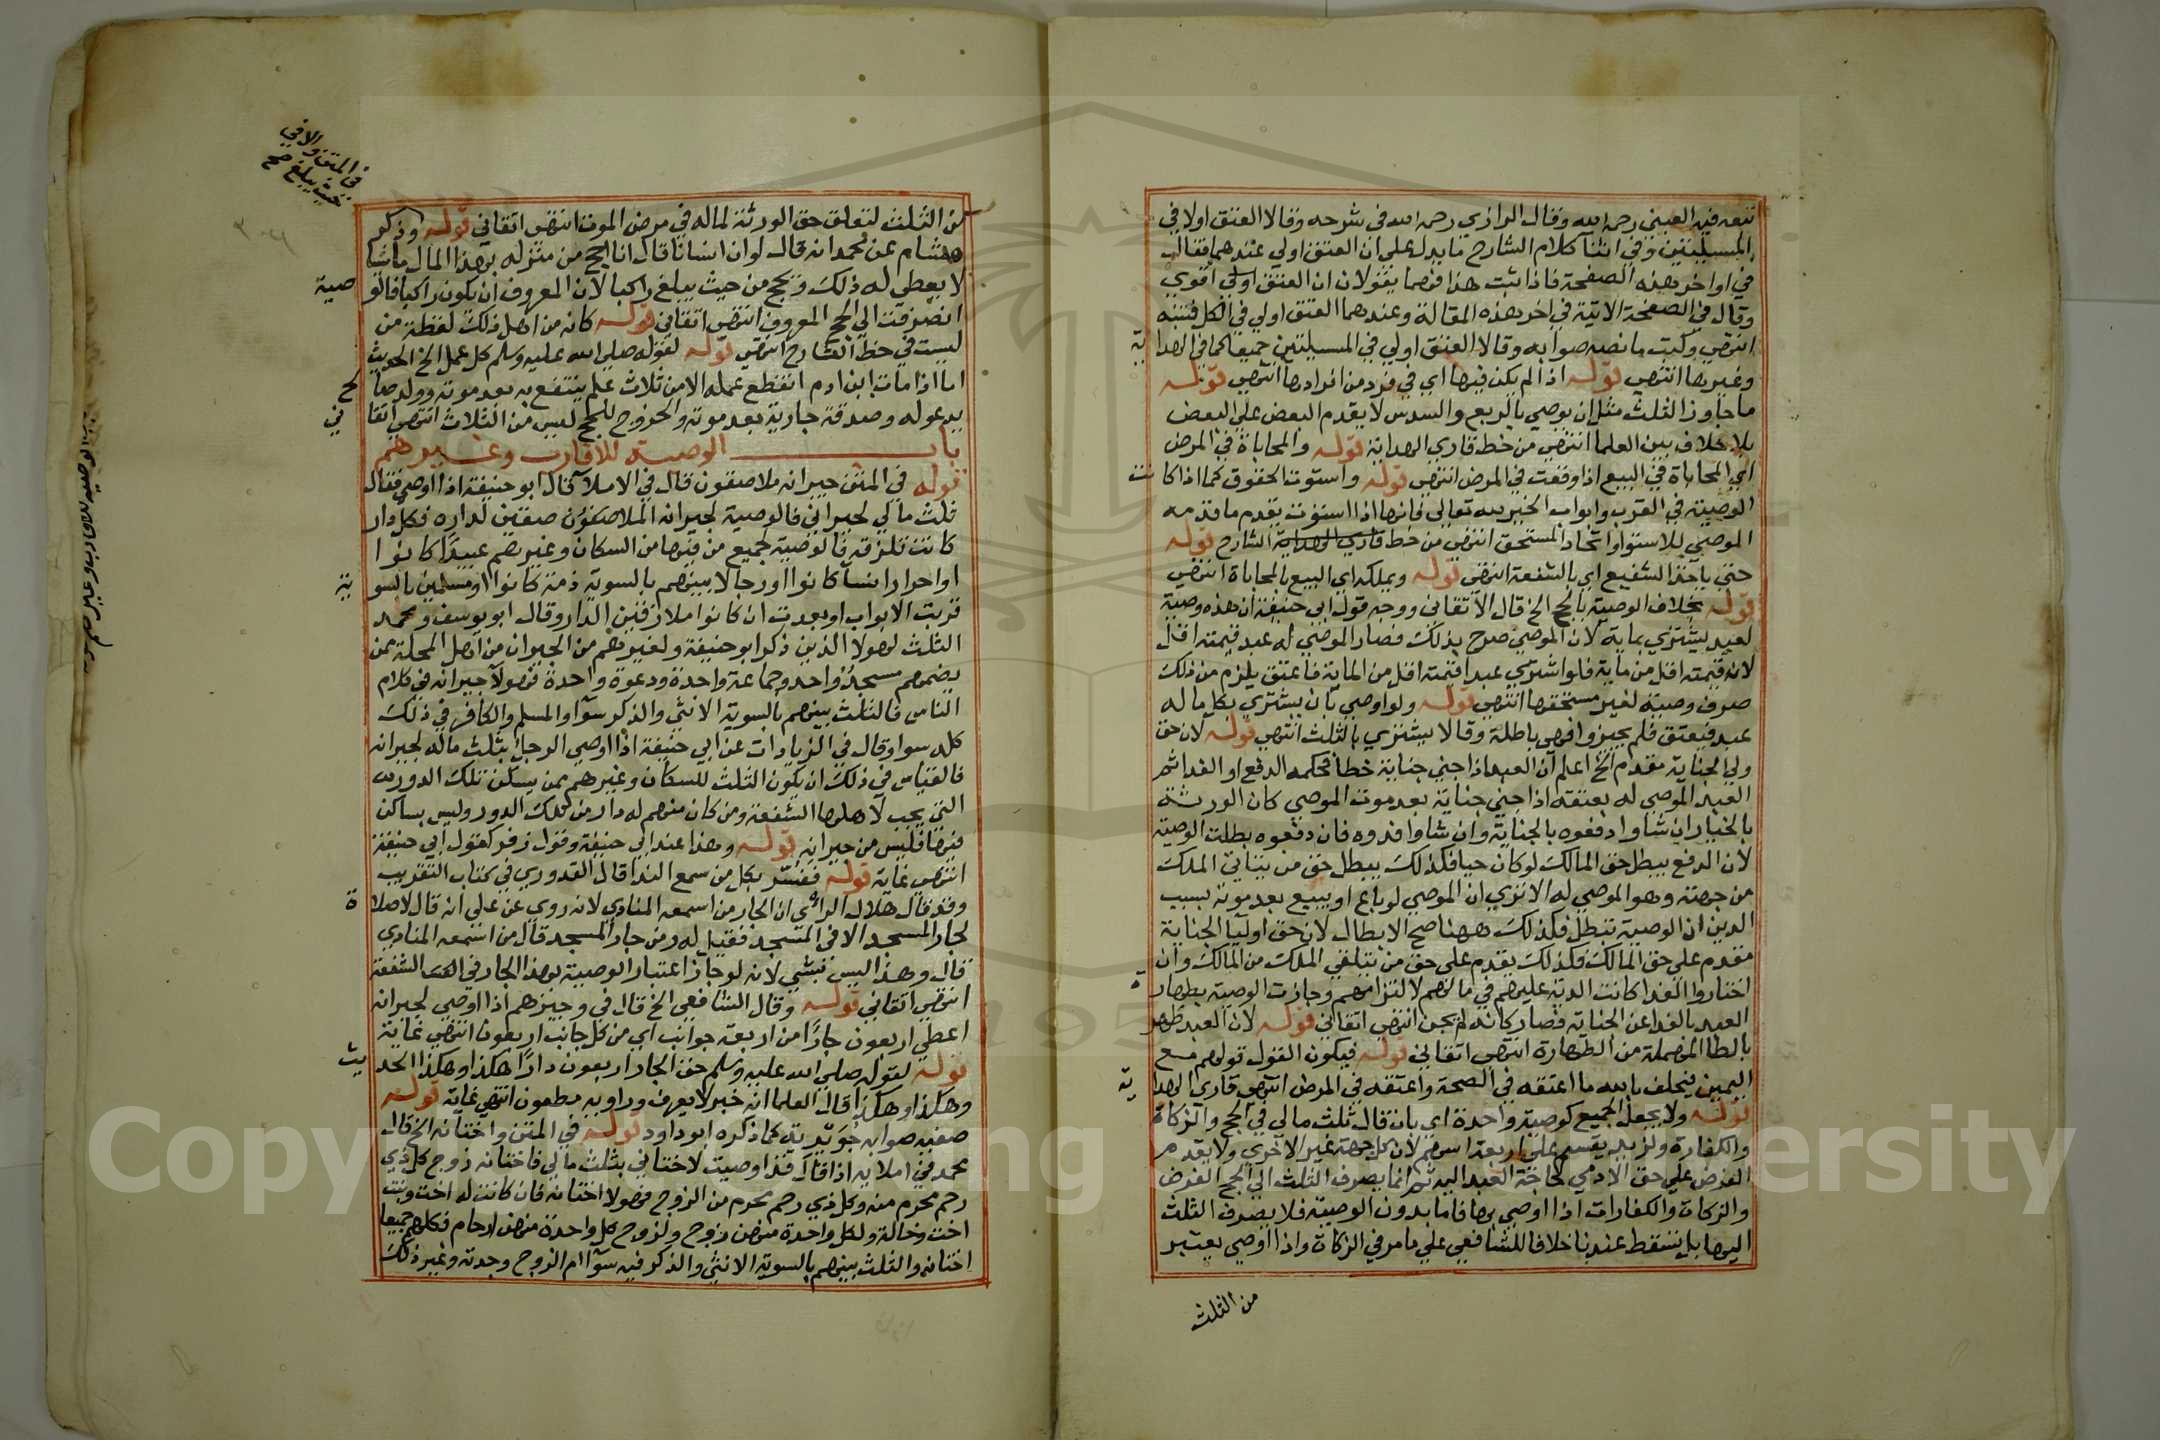 تبعه فيه العيني رحمه الله وقال الرازي رحمه الله في شرحه وقالا العتق اولا في
المسيلتين وفي اثنآ كلام الشارح ما يدل على ان العتق اولي عندهما فقال
في اواخر هذه الصفحة فاذا ثبت هذا فهما يقولان ان العتق اولي اقوي
وقال في الصفحة الاتية في اخر هذه المقالة وعندهما العتق اولي في الكل فتنبه
انتهي وكتب ما نصه صوابه وقالا العتق اولي في المسيلتين جميعا كما في الهداية
وغيرها انتهي قوله اذا لم يكن فيها اي في فرد من افرادها انتهي قوله
ما جاوز الثلث مثل ان يوصي بالربع والسدس لا يقدم البعض علي البعض
بلا خلاف بين العلما انتهي من خط قاري الهداية قوله والمحاباة في المرض
اي المحاباة في البيع اذا وقعت في المرض انتهي قوله واستوت الحقوق كما اذا كانت
الوصية في القرب وابواب الخير لله تعالي فانها اذا استوت يقدم ما قدمه
الموصي للاستوا واتحاد المستحق انتهي من خط قاري الهداية الشارح قوله
حتي ياخذ الشفيع اي بالشفعة انتهي قوله ويملكه اي البيع بالمحاباة انتهي
قوله بخلاف الوصية بالحج الخ قال الاتقاني ووجه قول ابي حنيفة ان هذه وصية
لعبد يشتري بماية لان الموصي صرح بذلك فصار الموصي له عبد قيمته اقل
لان قيمته اقل من ماية فلو اشتري عبدا قيمته اقل من الماية فاعتق يلزم من ذلك
صرف وصية لغير مستحقها انتهي قوله ولو اوصي بان يشتري بكل ماله
عبد فيعتق فلم يجيزوا فهي باطلة وقالا يشتري بالثلث انتهي قوله لان حق
ولي الجناية مقدم الخ اعلم ان العبد اذا جني جناية خطا فحكمه الدفع او الفدا ثم
العبد الموصي له بعتقه اذا جني جناية بعد موت الموصي كان الورثة
بالخيار ان شاوا دفعوه بالجناية وان شاوا فدوه فان دفعوه بطلت الوصية
لان الدفع يبطل حق المالك لو كان حيا فكذلك يبطل حق من يتلقي الملك
من جهته وهو الموصي له الا تري ان الموصي لو باع او بيع بعد موته بسبب
الدين ان الوصية تبطل فكذلك ههنا صح الابطال لان حق اوليآ الجناية
مقدم علي حق المالك فكذلك يقدم علي حق من يتلقي الملك من المالك وان
اختاروا الفدا كانت الدية عليهم في مالهم لالتزامهم وجازت الوصية بطهارة
العبد بالفدا عن الجناية فصار كانه لم يجن انتهي اتقاني قوله لان العبد طهر
بالطا المهملة من الطهارة انتهي اتقاني قوله فيكون القول قولهم مع
اليمين فيحلف بالله ما اعتقه في الصحة واعتقه في المرض انتهي قاري الهداية
قوله ولا يجعل الجميع كوصية واحدة اي بان قال ثلث مالي في الحج والزكاة
والكفارة ولزيد يقسم علي اربعة اسهم لان كل جهة غير الاخري ولا يقدم
الفرض علي حق الادمي لحاجة العبد اليه ثم انما يصرف الثلث الي الحج الفرض
والزكاة والكفارات اذا اوصي بها فاما بدون الوصية فلا يصرف الثلث
اليها بل يسقط عندنا خلافا للشافعي علي ما مر في الزكاة واذا اوصي يعتبر
من الثلث
في المتن والا في
حيث يبلغ صح
من الثلث لتعلق حق الورثة لماله في مرض الموت انتهي اتقاني قوله وذكر
هشام عن محمد انه قال لو ان انسانا قال انا احج من منزله بهذا المال ماشيا
لا يعطي له ذلك ويحج من حيث يبلغ راكبا لان المعروف ان يكون راكبا فالوصية
انصرفت الي الحج المعروف انتهي اتقاني قوله كانه من اهل ذلك لفظة من
ليست في خط الشارح انتهي قوله لقوله صلي الله عليه وسلم كل عمل الخ الحديث
اما اذا مات ابن ادم انقطع عمله الا من ثلاث علم ينتفع به بعد موته وولد صالح
يدعوله وصدقة جارية بعد موته والخروج للحج ليس من الثلاث انتهي اتقاني
باب الوصية للاقارب وغيرهم
قوله في المتن جيرانه ملاصقون قال في الاملآ قال ابو حنيفة اذا اوصي فقال
ثلث مالي لجيراني فالوصية لجيرانه الملاصقون صقين لداره فكل دار
كانت تلزقه فالوصية لجميع من فيها من السكان وغيرهم عبيدا كانوا
او احرارا نسآ كانوا او رجالا بينهم بالسوية ذمة كانوا او مسلمين بالسوية
قربت الابواب او بعدت ان كانوا ملازقين الدار وقال ابو يوسف ومحمد
الثلث لهولا الذين ذكر ابو حنيفة ولغيرهم من الجيران من اهل المحلة ممن
يضمهم مسجد واحد وجماعة واحدة ودعوة واحدة فهولآ جيرانه في كلام
الناس فالثلث بينهم بالسوية الانثي والذكر سوآ والمسلم والكافر في ذلك
كله سوا وقال في الزيادات عن ابي حنيفة اذا اوصي الرجل بثلث ماله لجيرانه
فالقياس في ذلك ان يكون الثلث للسكان وغيرهم ممن يسكن تلك الدور
التي يجب لاهلها الشفعة ومن كان منهم له دار من تلك الدور وليس بساكن
فيها فليس من جيرانه قوله وهذا عند ابي حنيفة وقول زفر كقول ابي حنيفة
انتهي غاية قوله ففسر بكل من سمع الندا قال القدوري في كتاب التقريب
وقد قال هلال الراي ان الجار من اسمعه المنادي لانه روي عن علي انه قال لا صلاة
لجار المسجد الا في المسجد فقيل له ومن جار المسجد قال من اسمعه المنادي
قال وهذا ليس بشي لانه لو جاز اعتبار الوصية بهذا الجار في الشفعة
انتهي اتقاني قوله وقال الشافعي الخ قال في وجيزهم اذا اوصي لجيرانه
اعطي اربعون جارا من اربعة جوانب اي من كل جانب اربعون انتهي غاية
قوله لقوله صلي الله عليه وسلم حق الجار اربعون دارا هكذا وهكذا الحديث
وهكذا وهكذا قال العلما انه خبر لا يعرف وراويه مطعون انتهي غاية قوله
صفية صوابه جويرية كما ذكره ابو داود قوله في المتن واختانه الخ قال
محمد في املايه اذا قال قد اوصيت لاختاني بثلث مالي فاختانه زوج كل ذي
رحم محرم منه وكل ذي رحم محرم من الزوج فهولا اختانه فان كانت له اخت وبنت
اخت وخالة ولكل واحدة منهن زوج ولزوج كل واحدة منهن ارحام فكلهم جميعا
اختانه والثلث بينهم بالسوية الانثي والذكر فيه سوآ ام الزوج وجدته وغير ذلك
Copy
ng
ersity
195